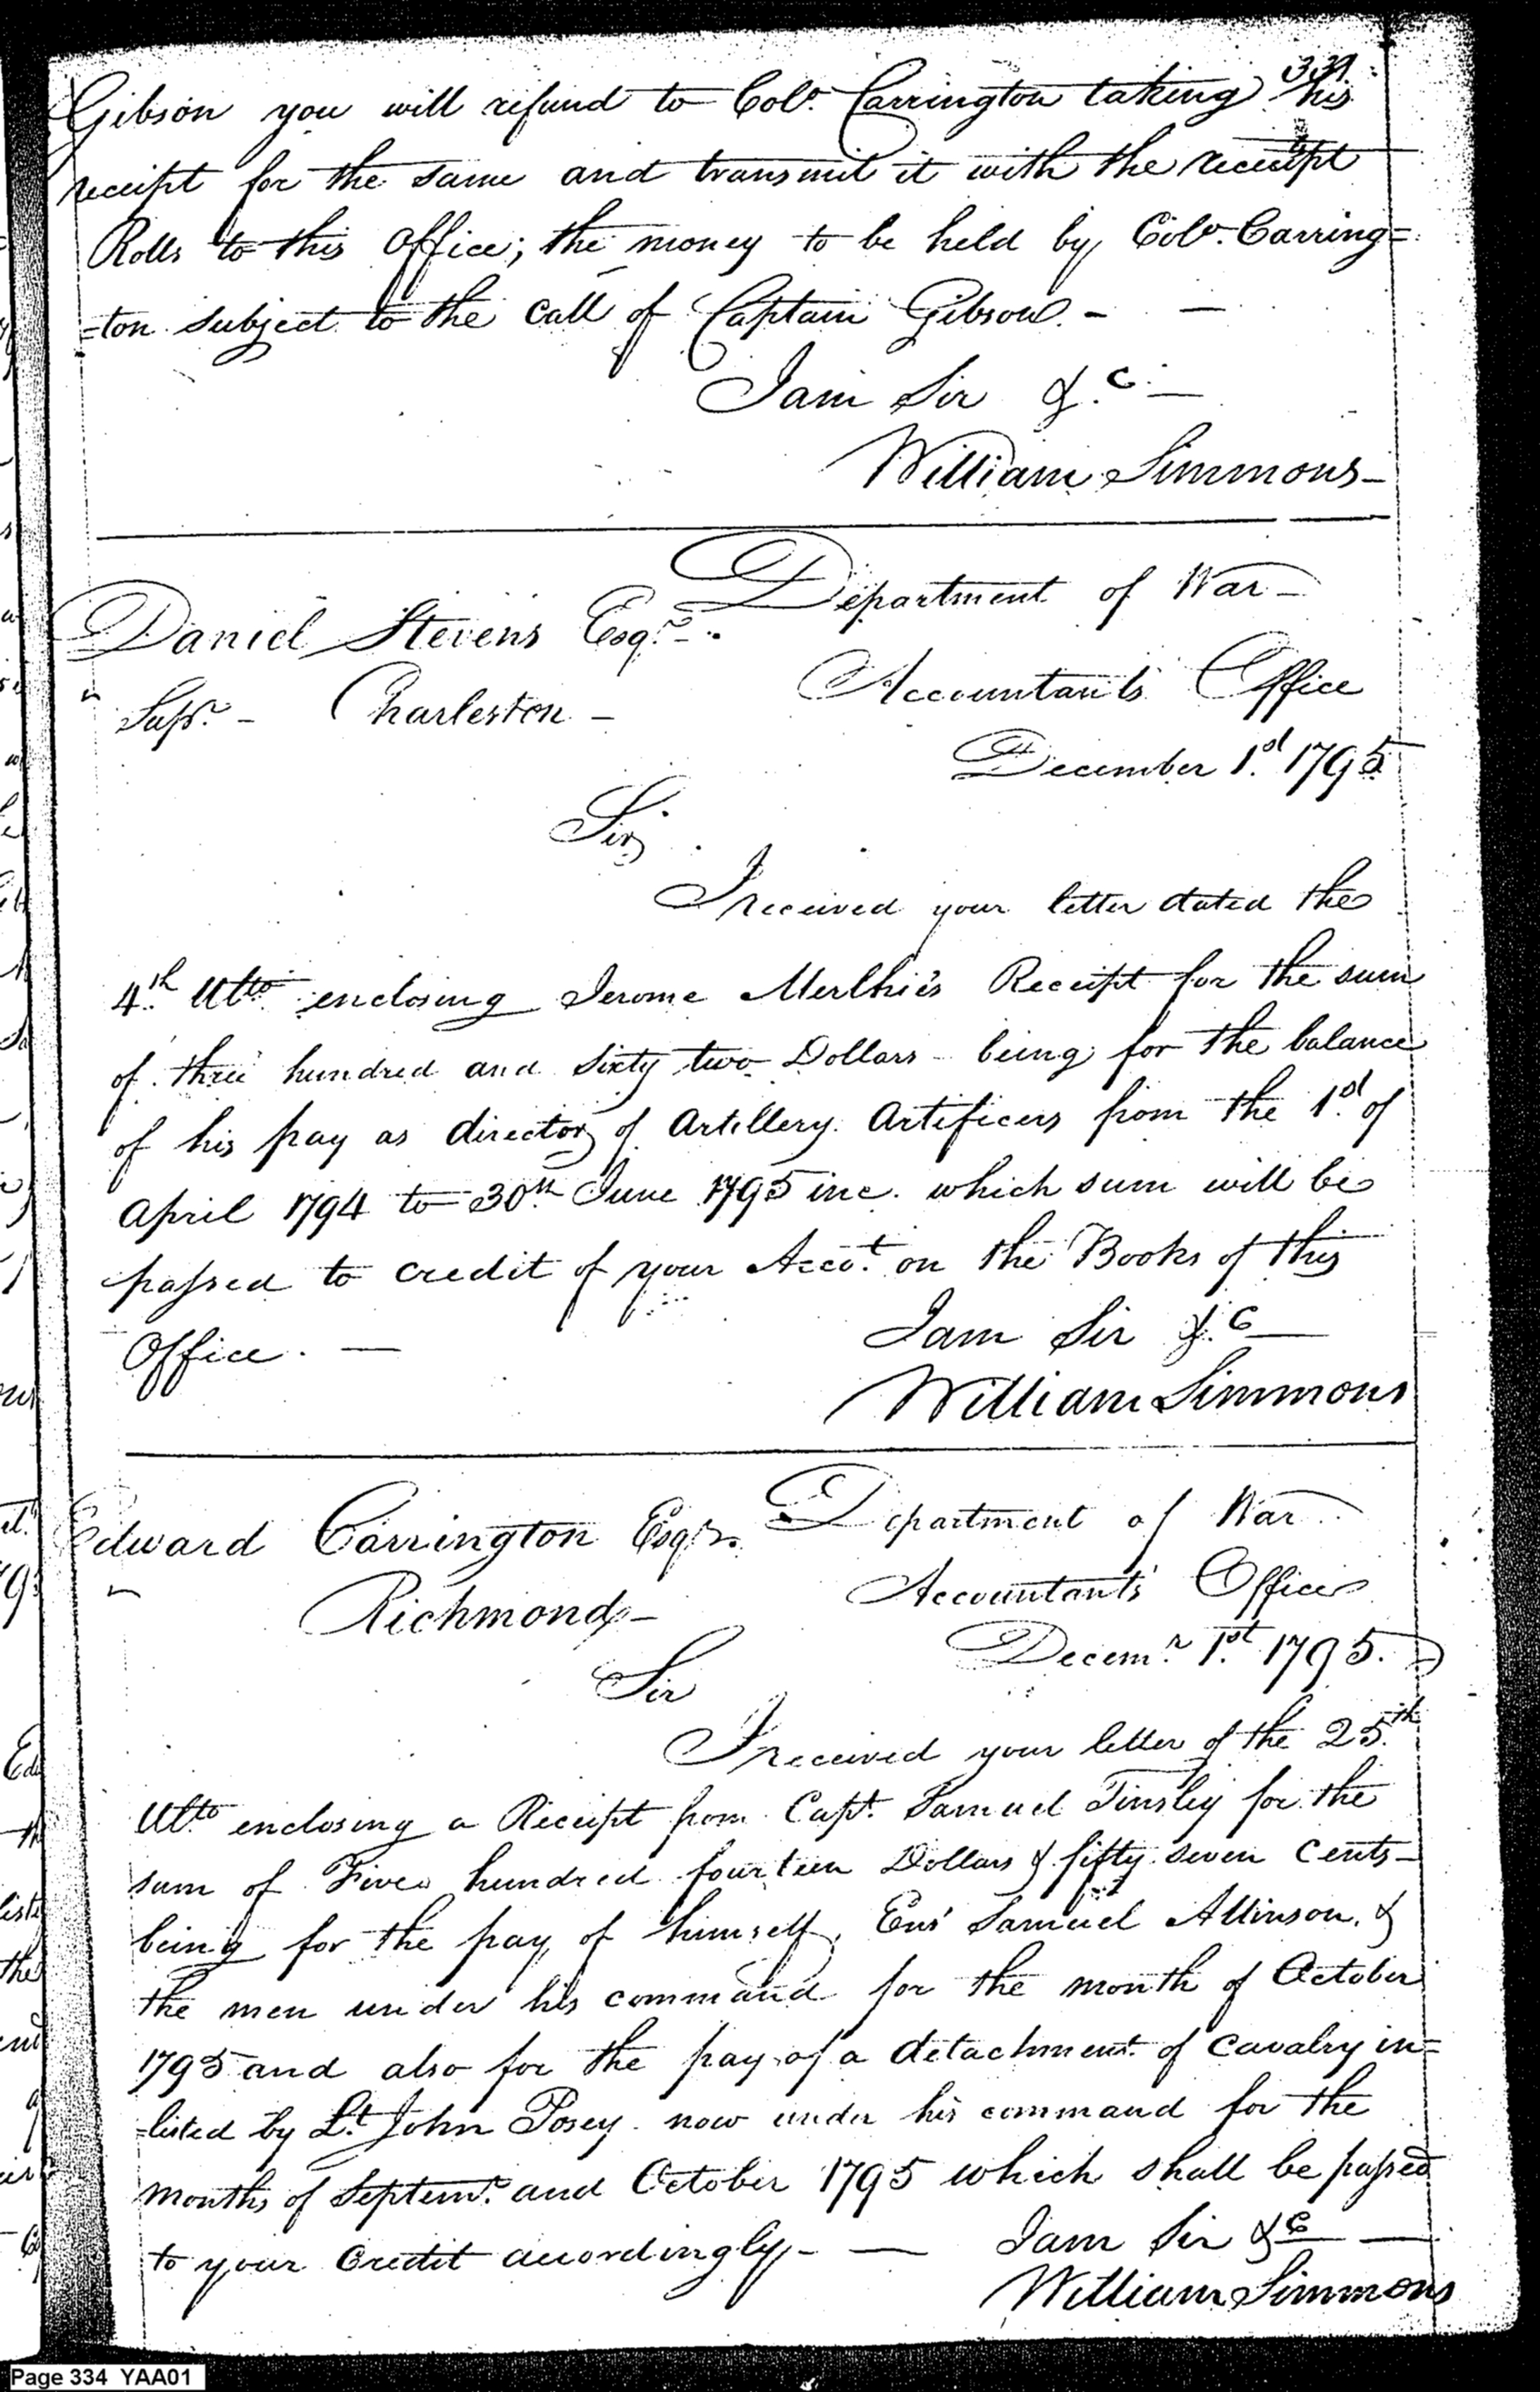 331
Gibson you will refund to Colo. Carrington taking his
receipt for the same and transmit it with the receipt
Rolls to this Office; the money to be held by Colo. Carring=
=ton subject to the Call of Captain Gibson. - -
I am Sir &.c. —
William Simmons -
Department of War -
Daniel Stevens Esqr. -
Accountants Office
Supr. - Charleston -
December 1.st 1795
Sir,
I received your letter dated the
4.th Ulto. enclosing Jerome Merlhie's Receipt for the sum
of three hundred and sixty two Dollars - being for the balance
of his pay as director of Artillery Artificers from the 1.st of
April 1794 to 30th June 1795 inc. which sum will be
passed to credit of your Acco.t on the Books of this
Office. —
I am Sir &.c —
William Simmons
Department of War
Edward Carrington Esqr.
Accountants' Office
Richmond -
Decem.r 1.st 1795.
Sir
I received your letter of the 25.th
Ulto. enclosing a Receipt from Capt. Samuel Tinsley for the
sum of Five hundred fourteen Dollars & fifty seven Cents -
being for the pay of himself, Ens' Samuel Allinson, &
the men under his command for the month of October
1795 and also for the pay of a detachment of Cavalry in=
=listed by Lt. John Posey now under his command for the
months of Septemr. and October 1795 which shall be passed
to your Credit accordingly - —
I am Sir &c —
William Simmons
Page 334 YAA01